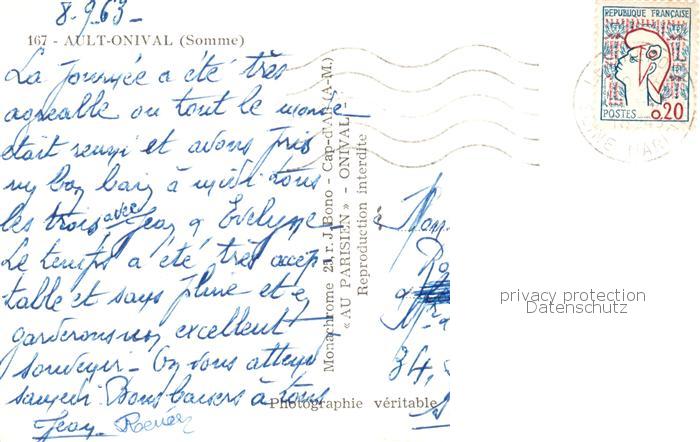 8.9.63 -
167 - AULT-ONIVAL (Somme)
La journée a été très
agréable ou tout le monde
était réuni et avons pris
un bon bain à midi tous
les trois avec Jean et Evelyne -
Le temps a été très accep
table et sans pluie et en
garderons un excellent
souvenir - On vous attend
samedi. Bons baisers à tous
Jean Renée
Monachrome 23, r. J. Bono - Cap-d'Ail (A.-M.)
« AU PARISIEN » - ONIVAL
Reproduction interdite
Photographie véritable
REPUBLIQUE FRANÇAISE
POSTES 0,20
34,
privacy protection
Datenschutz